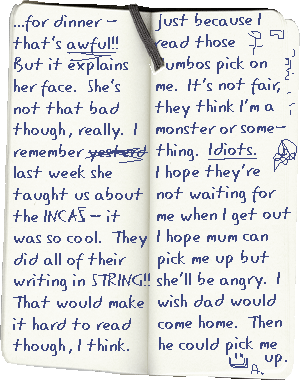 ...for dinner –
that's awful!!
But it explains
her face. She's
not that bad
though, really. I
remember yesterd
last week she
taught us about
the INCAS – it
was so cool. They
did all of their
writing in STRING!!
That would make
it hard to read
though, I think.
just because I
read those
jumbos pick on
me. It's not fair,
they think I'm a
monster or some–
thing. Idiots.
I hope they're
not waiting for
me when I get out
I hope mum can
pick me up but
she'll be angry. I
wish dad would
come home. Then
he could pick me
up.
A.